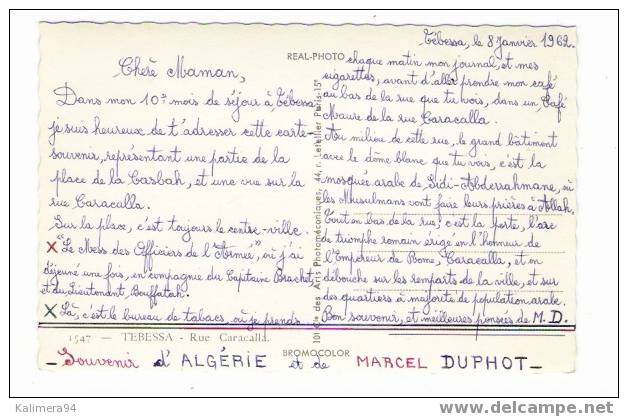 Tébessa, le 8 Janvier 1962.
Chère Maman,
Dans mon 10e mois de séjour à Tébessa
je suis heureux de t'adresser cette carte-
souvenir, représentant une partie de la
place de la Casbah, et une vue sur la
rue Caracalla.
Sur la place, c'est toujours le centre-ville.
X "Le Mess des Officiers de l'Armée", où j'ai
déjeuné une fois, en compagnie du Capitaine Brachet
et du Lieutenant Bouffatah.
X Là, c'est le bureau de tabacs, où je prends
REAL-PHOTO
101 Cie des Arts Photomécaniques, 44, r. Letellier Paris-15e
BROMOCOLOR
chaque matin mon journal, et mes
cigarettes, avant d'aller prendre mon café
au bas de la rue que tu vois, dans un Café
Maure de la rue Caracalla.
Au milieu de cette rue, le grand bâtiment
avec le dôme blanc que tu vois, c'est la
mosquée arabe de Sidi-Abderrahmane, où
les Musulmans vont faire leurs prières à Allah.
Tout en bas de la rue, c'est la porte, l'arc
de triomphe romain érigé en l'honneur de
l'Empereur de Rome, Caracalla, et on
débouche sur les remparts de la ville, et sur
des quartiers à majorité de population arabe.
Bon souvenir, et meilleures pensées de M.D.
1547 — TEBESSA - Rue Caracalla.
- Souvenir d'ALGÉRIE et de MARCEL DUPHOT -
Kalimera94
delcampe.net